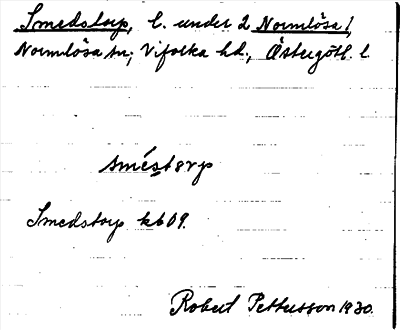 Smedstorp, l. under 2 Normlösa 1,
Normlösa sn, Vifolka hd, Östergötl. l.
smés̲tɘrp
Smedstorp kb 09.
Robert Pettersson 1930.